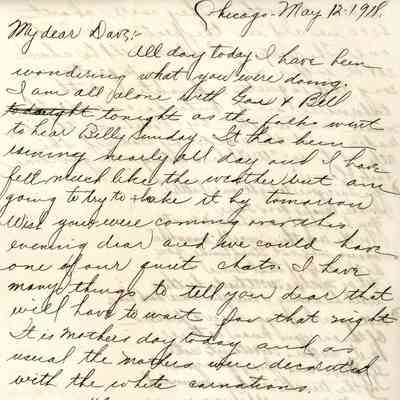 Chicago - May 12 - 1918.
My dear Dave;-
All day today I have been
wondering what you were doing.
I am all alone with & Bill
tonight as the folks went
to hear Billy Sunday. It has been
raining nearly all day and I have
felt much like the weather but am
going to try to shake it by tomorrow
Wish you were coming over this
evening dear and we could have
one of our quiet chats. I have
many things to tell you dear that
will have to wait for that night
It is Mothers day today and as
usual the mothers were decorated
with the white carnations.